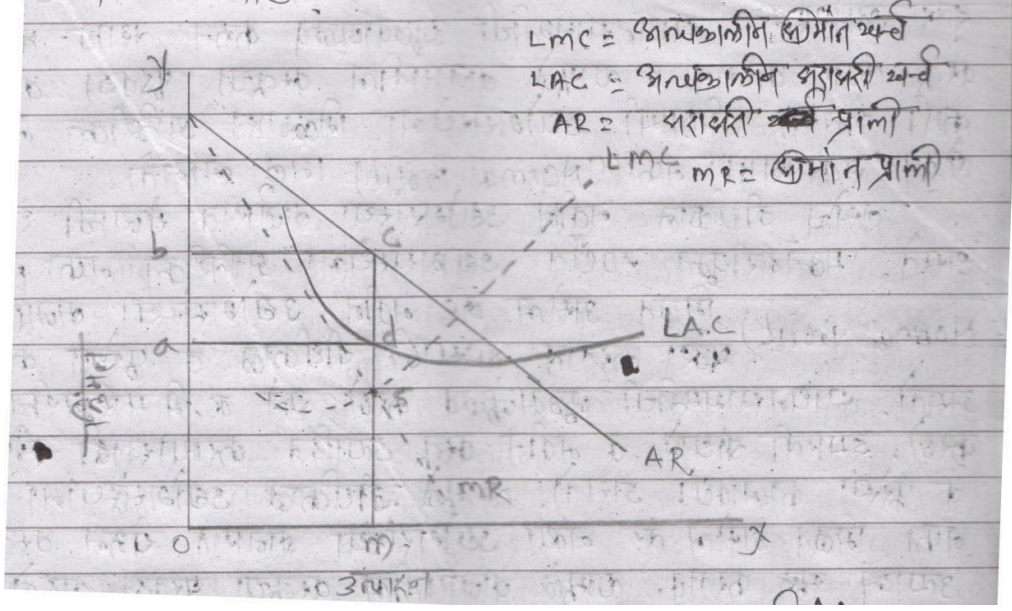 LMC = अल्पकालीन सीमांत खर्च
LAC = अल्पकालीन सरासरी खर्च
AR = सरासरी प्राप्ती
LMC
MR = सीमांत प्राप्ती
y
b
c
a
d
LAC
किंमत
AR
MR
O
m
x
उत्पादन